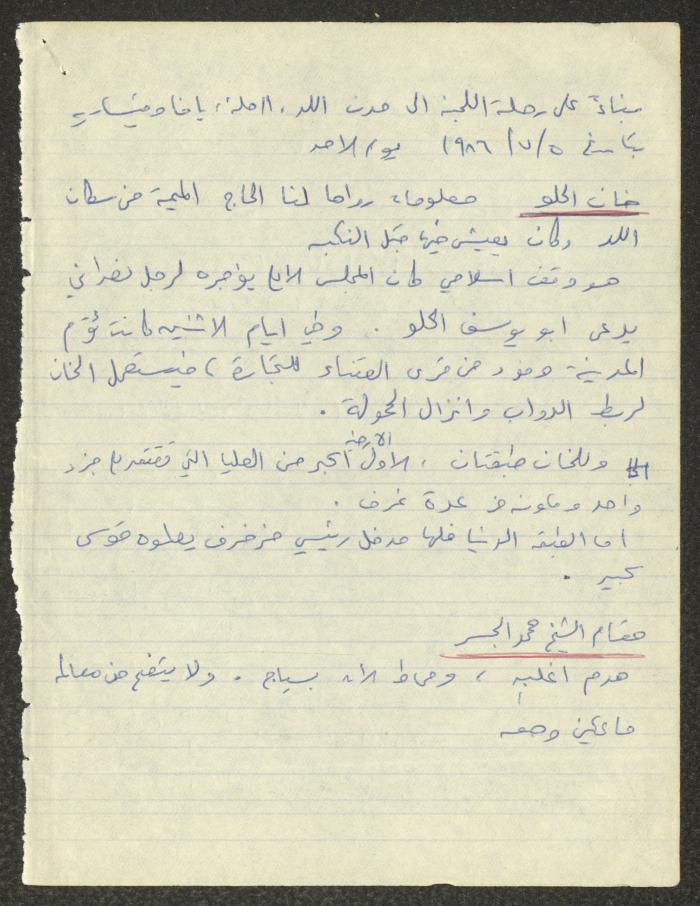 بناءً على رحلة اللجنة الى مدن اللد، الرملة، يافا وقيساريه
بتاريخ ٥/ ٧/ ١٩٨٦ يوم الاحد
خان الحلو معلومات رواها لنا الحاج من سكان
اللد وكان يعيش فيها قبل النكبه
هو وقف اسلامي كان المجلس يؤجره لرجل نصراني
يدعى ابو يوسف الحلو . وفي ايام الاثنين كانت تؤم
المدينة وفود من قرى القضاء للتجارة ، فيستعمل الخان
لربط الدواب وانزال الحمولة .
وللخان طبقتان ، الأولى الارضية اكبر من العليا التي جزء
واحد من عدة غرف .
اما الطبقه الدنيا فلها مدخل رئيسي مزخرف يعلوه قوس
كبير .
مقام الشيخ محمد الجسر
هدم اغلبه ، ومحاط الان بسياج . ولا يتضح من معالمه
ما يمكن وصفه